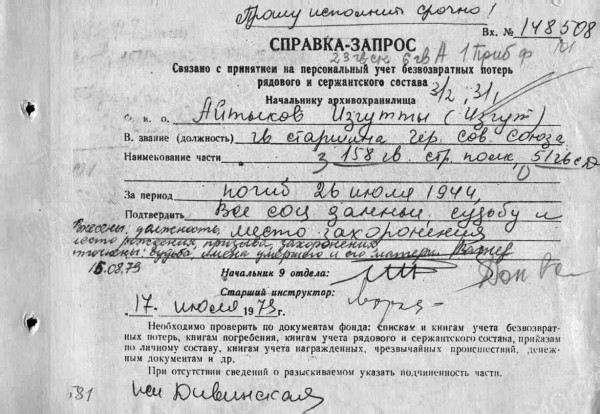 Прошу исполнить срочно!
Вх. № 148508
СПРАВКА-ЗАПРОС
23 гвск 6 гв А 1 Приб ф
Связано с принятием на персональный учет безвозвратных потерь
рядового и сержантского состава
3/2, 3/1,
Начальнику архивохранилища
Ф. и. о. Айтыков Изгутты (Изгут)
В. звание (должность) гв старшина Гер. Сов. Союза
Наименование части 158 гв. стр. полк, 51 гв сд
За период погиб 26 июля 1944,
Подтвердить Все соц данные, судьбу и
место захоронения
Внесены: должность,
место рождения, призыва, захоронения
уточнены: судьба, имена умершего и его матери
15.08.79
Начальник 9 отдела:
Старший инструктор:
17. июля 1979 г.
Необходимо проверить по документам фонда: спискам и книгам учета безвозврат-
ных потерь, книгам погребения, книгам учета рядового и сержантского состава, приказам
по личному составу, книгам учета награжденных, чрезвычайных происшествий, денеж-
ным документам и др.
При отсутствии сведений о разыскиваемом указать подчиненность части.
исп Дивинская